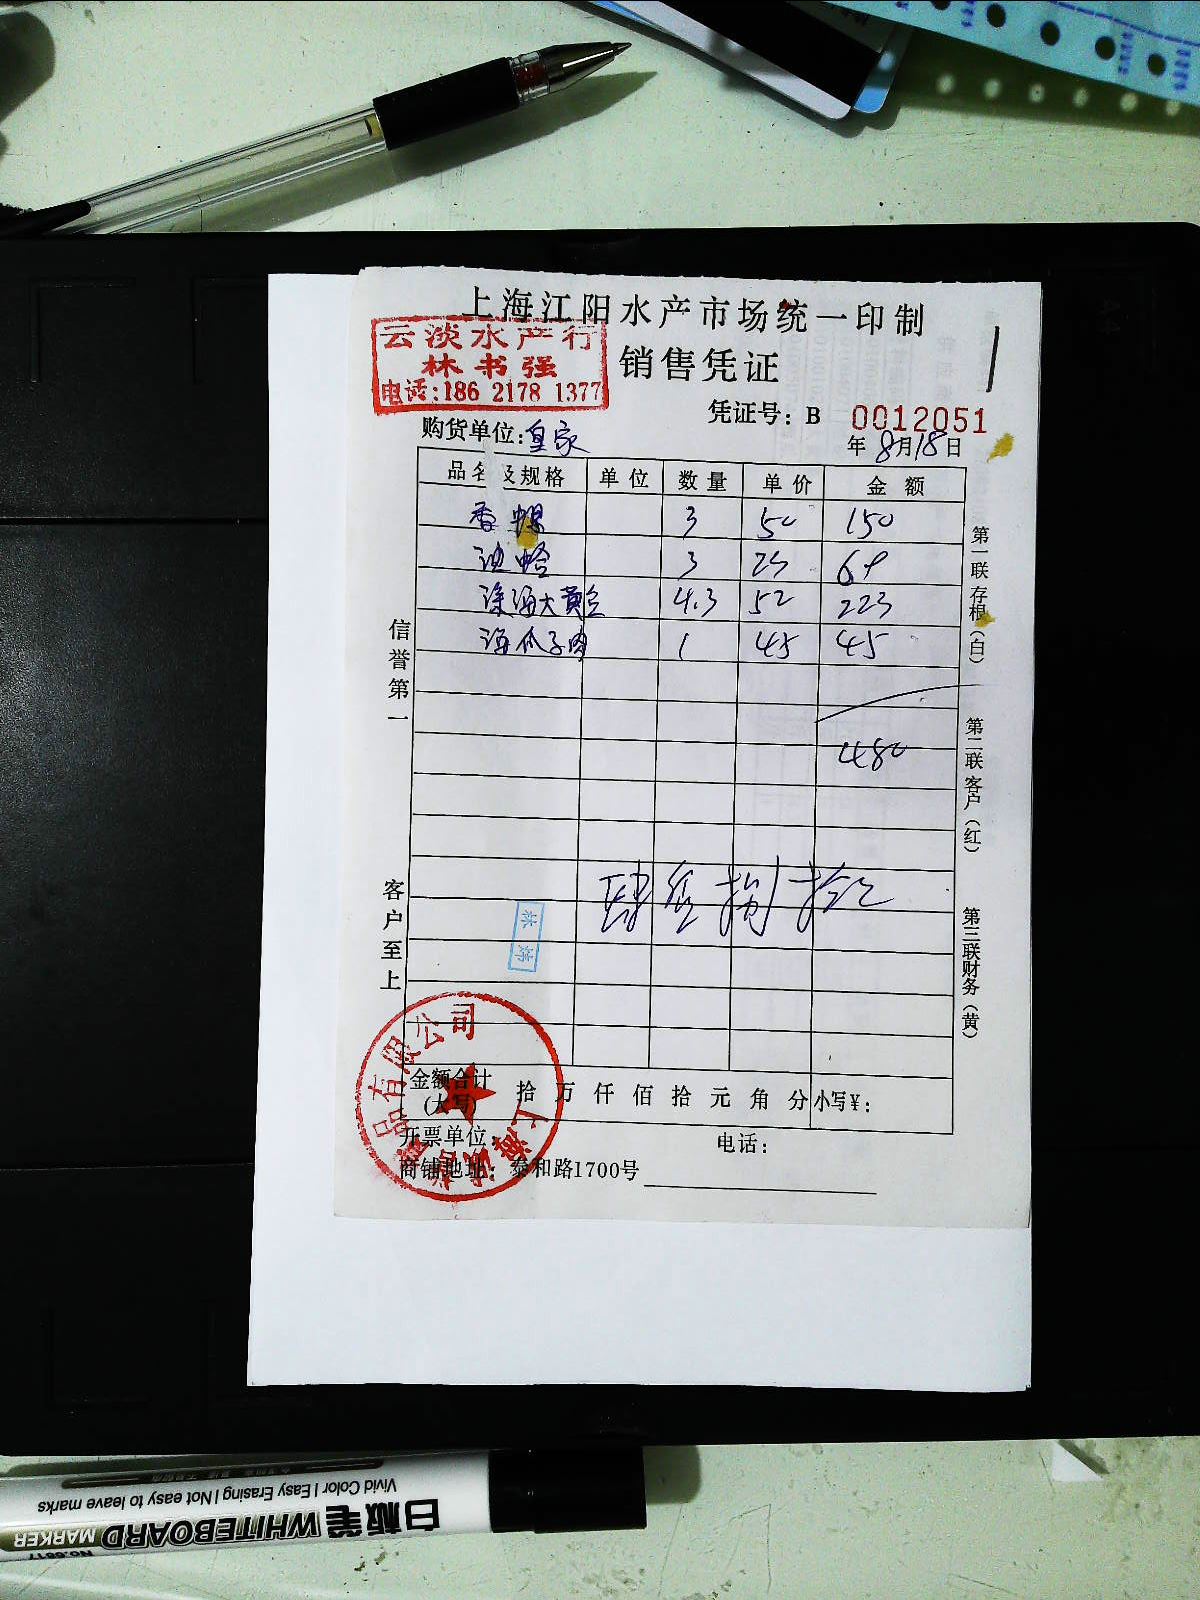 上海江阳水产市场统一印制
云淡水产行
林书强
电话:186 2178 1377
销售凭证
凭证号: B 0012051
购货单位:皇家
年8月18日
品名及规格 单位 数量 单价 金额
香螺 3 50 150
油蛤 3 23 69
深海大黄鱼 4.3 52 223
海瓜子肉 1 45 45
480
肆佰捌拾元
信誉第一
客户至上
第一联存根(白)
第二联客户(红)
第三联财务(黄)
金额合计(大写) 拾 万 仟 佰 拾 元 角 分 小写¥:
开票单位: 电话:
商铺地址: 泰和路1700号
上海
品有限公司
白板笔 WHITEBOARD MARKER
Vivid Color | Easy Erasing | Not easy to leave marks